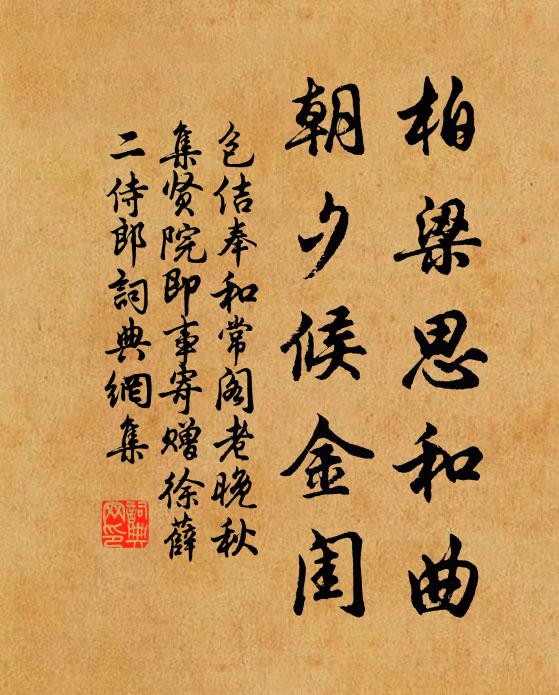 柏梁思和曲
朝夕候金闺
包佶奉和常阁老晚秋
集贤院即事寄赠徐薛
二侍郎詞典網集
詞典網印